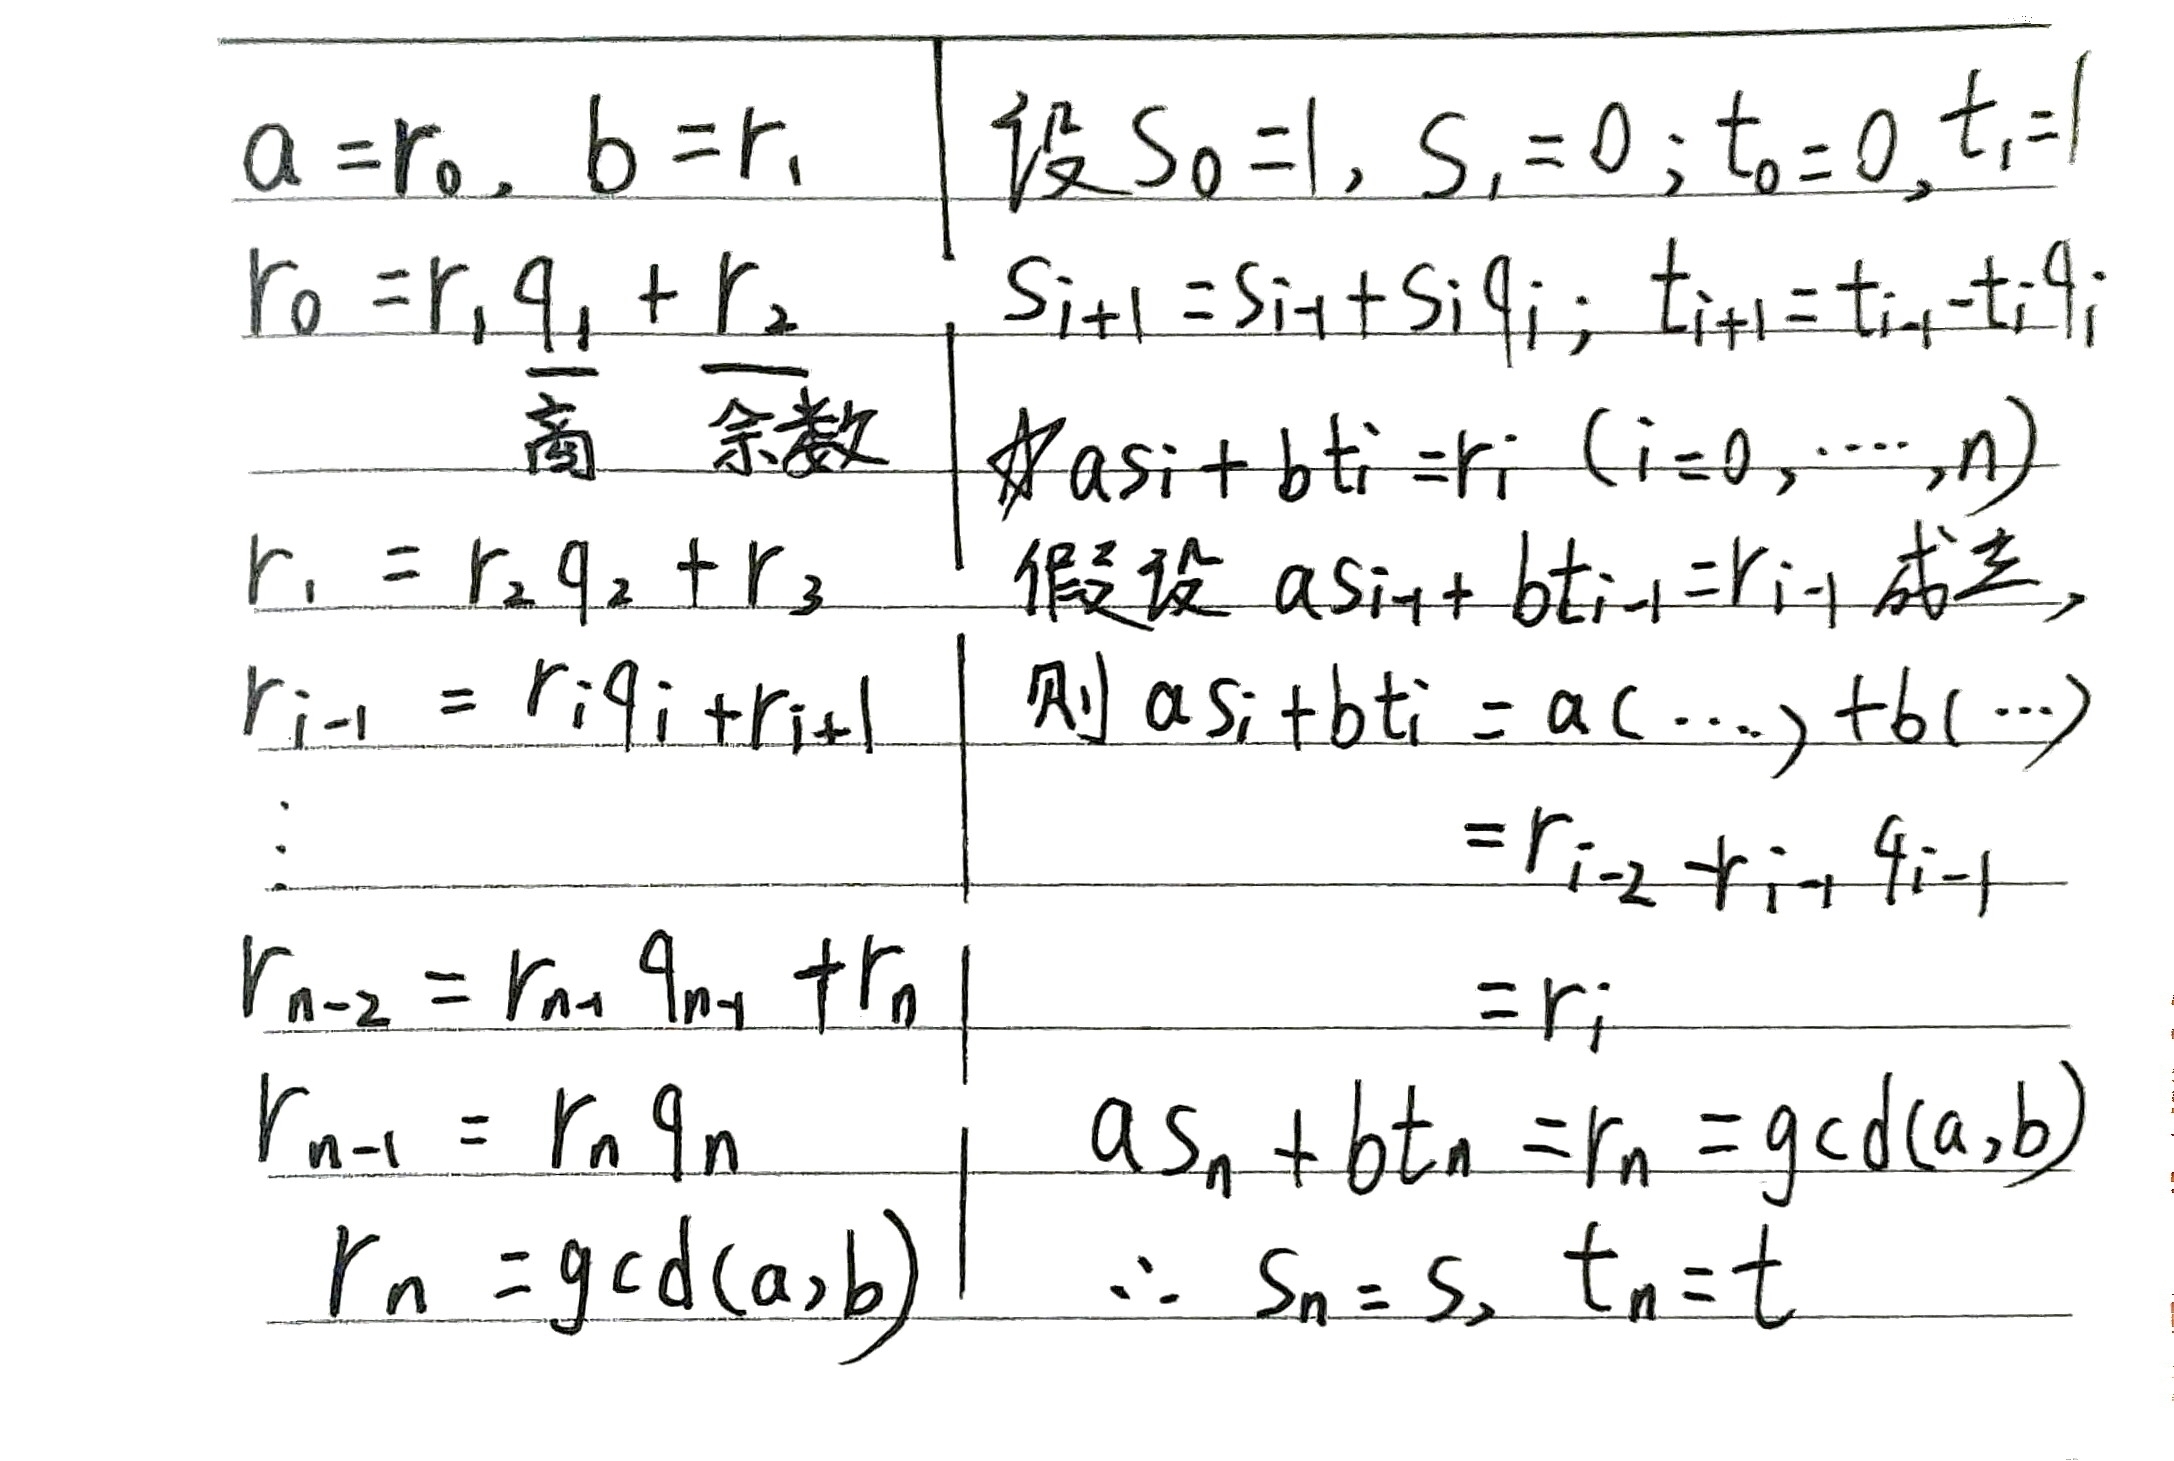 a = r₀, b = r₁
r₀ = r₁q₁ + r₂
商 余数
r₁ = r₂q₂ + r₃
rᵢ₋₁ = rᵢqᵢ + rᵢ₊₁
⋮
rₙ₋₂ = rₙ₋₁qₙ₋₁ + rₙ
rₙ₋₁ = rₙqₙ
rₙ = gcd(a,b)
设 s₀ = 1, s₁ = 0; t₀ = 0, t₁ = 1
sᵢ₊₁ = sᵢ₋₁ + sᵢqᵢ; tᵢ₊₁ = tᵢ₋₁ - tᵢqᵢ
asᵢ + btᵢ = rᵢ (i = 0, ……, n)
假设 asᵢ₋₁ + btᵢ₋₁ = rᵢ₋₁ 成立,
则 asᵢ + btᵢ = a(…..) + b(…)
= rᵢ₋₂ - rᵢ₋₁qᵢ₋₁
= rᵢ
asₙ + btₙ = rₙ = gcd(a,b)
∴ sₙ = s, tₙ = t